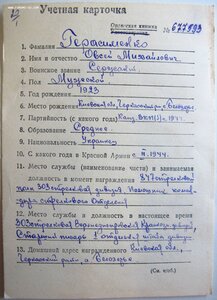 Учетная карточка
Орденская книжка
№ 677893
1. Фамилия Герасименко
2. Имя и отчество Овсей Михайлович
3. Воинское звание Сержант
4. Пол Мужской
5. Год рождения 1923
6. Место рождения Киевская обл,
7. Партийность (с какого года) Канд. ВКП(б) 1944.
8. Образование Среднее
9. Национальность Украинец
10. С какого года в Красной Армии с II. 1944.
11. Место службы (наименование части) и занимаемая
должность в момент награждения
30 Стрелковой дивизии
стрелкового отделения
12. Место службы и должность в настоящее время
30 Стрелковая дивизия,
Старший писарь 1 отделения штаба
13. Домашний адрес награжденного Киевская обл.,
Черкасский
(См. на об.)